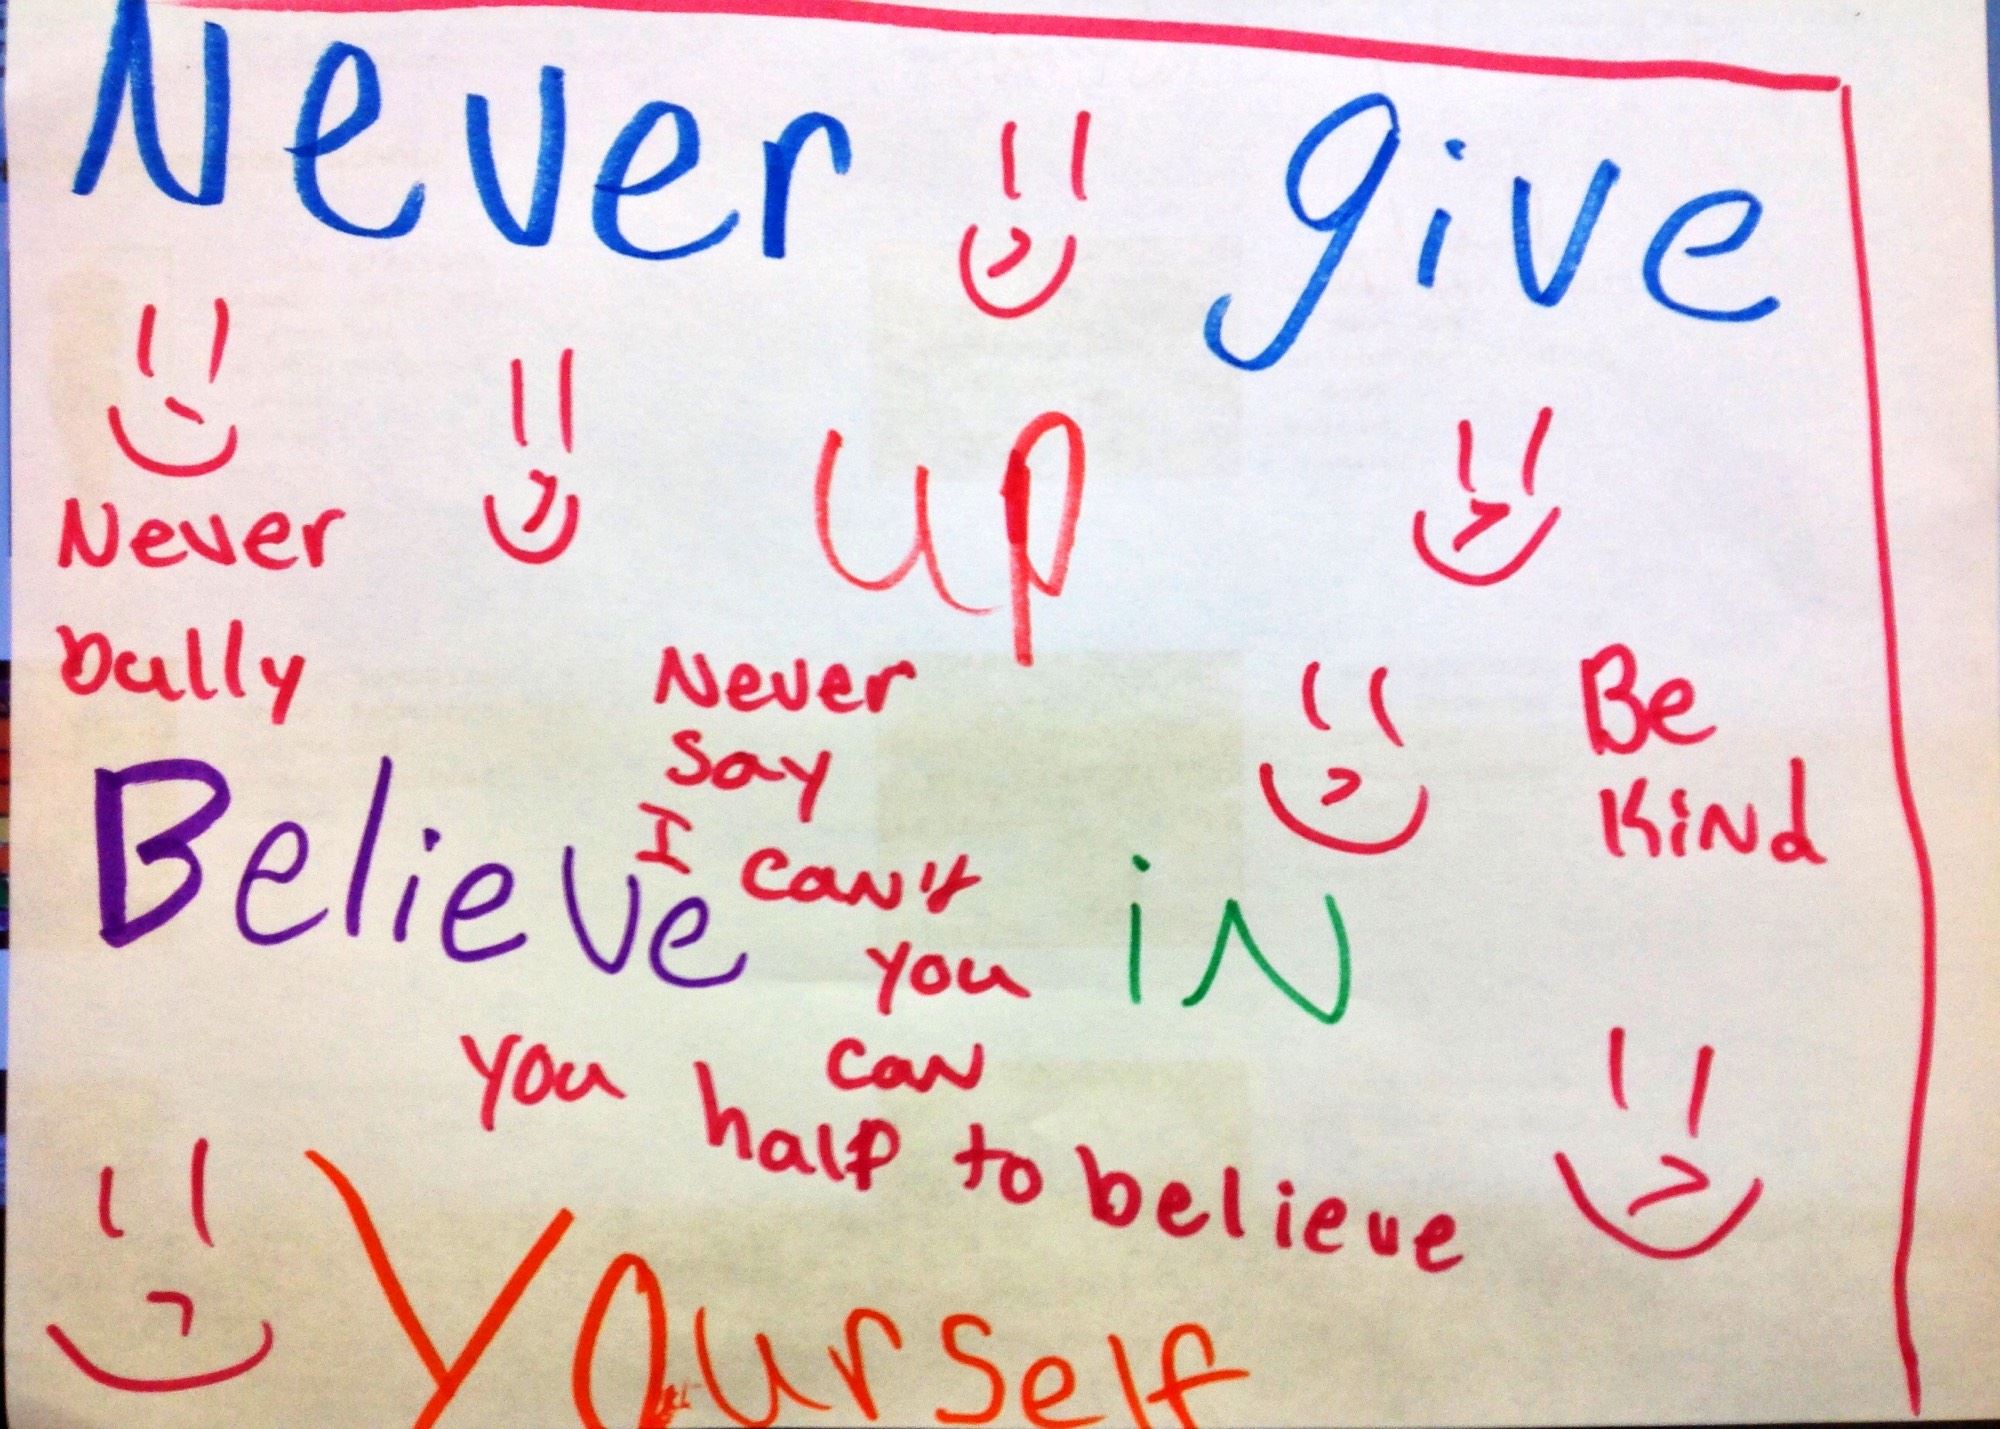 Never give
up
Never
bully
Never
Say
I can't
you
can
Be
Kind
Believe in
you halp to believe
Yourself